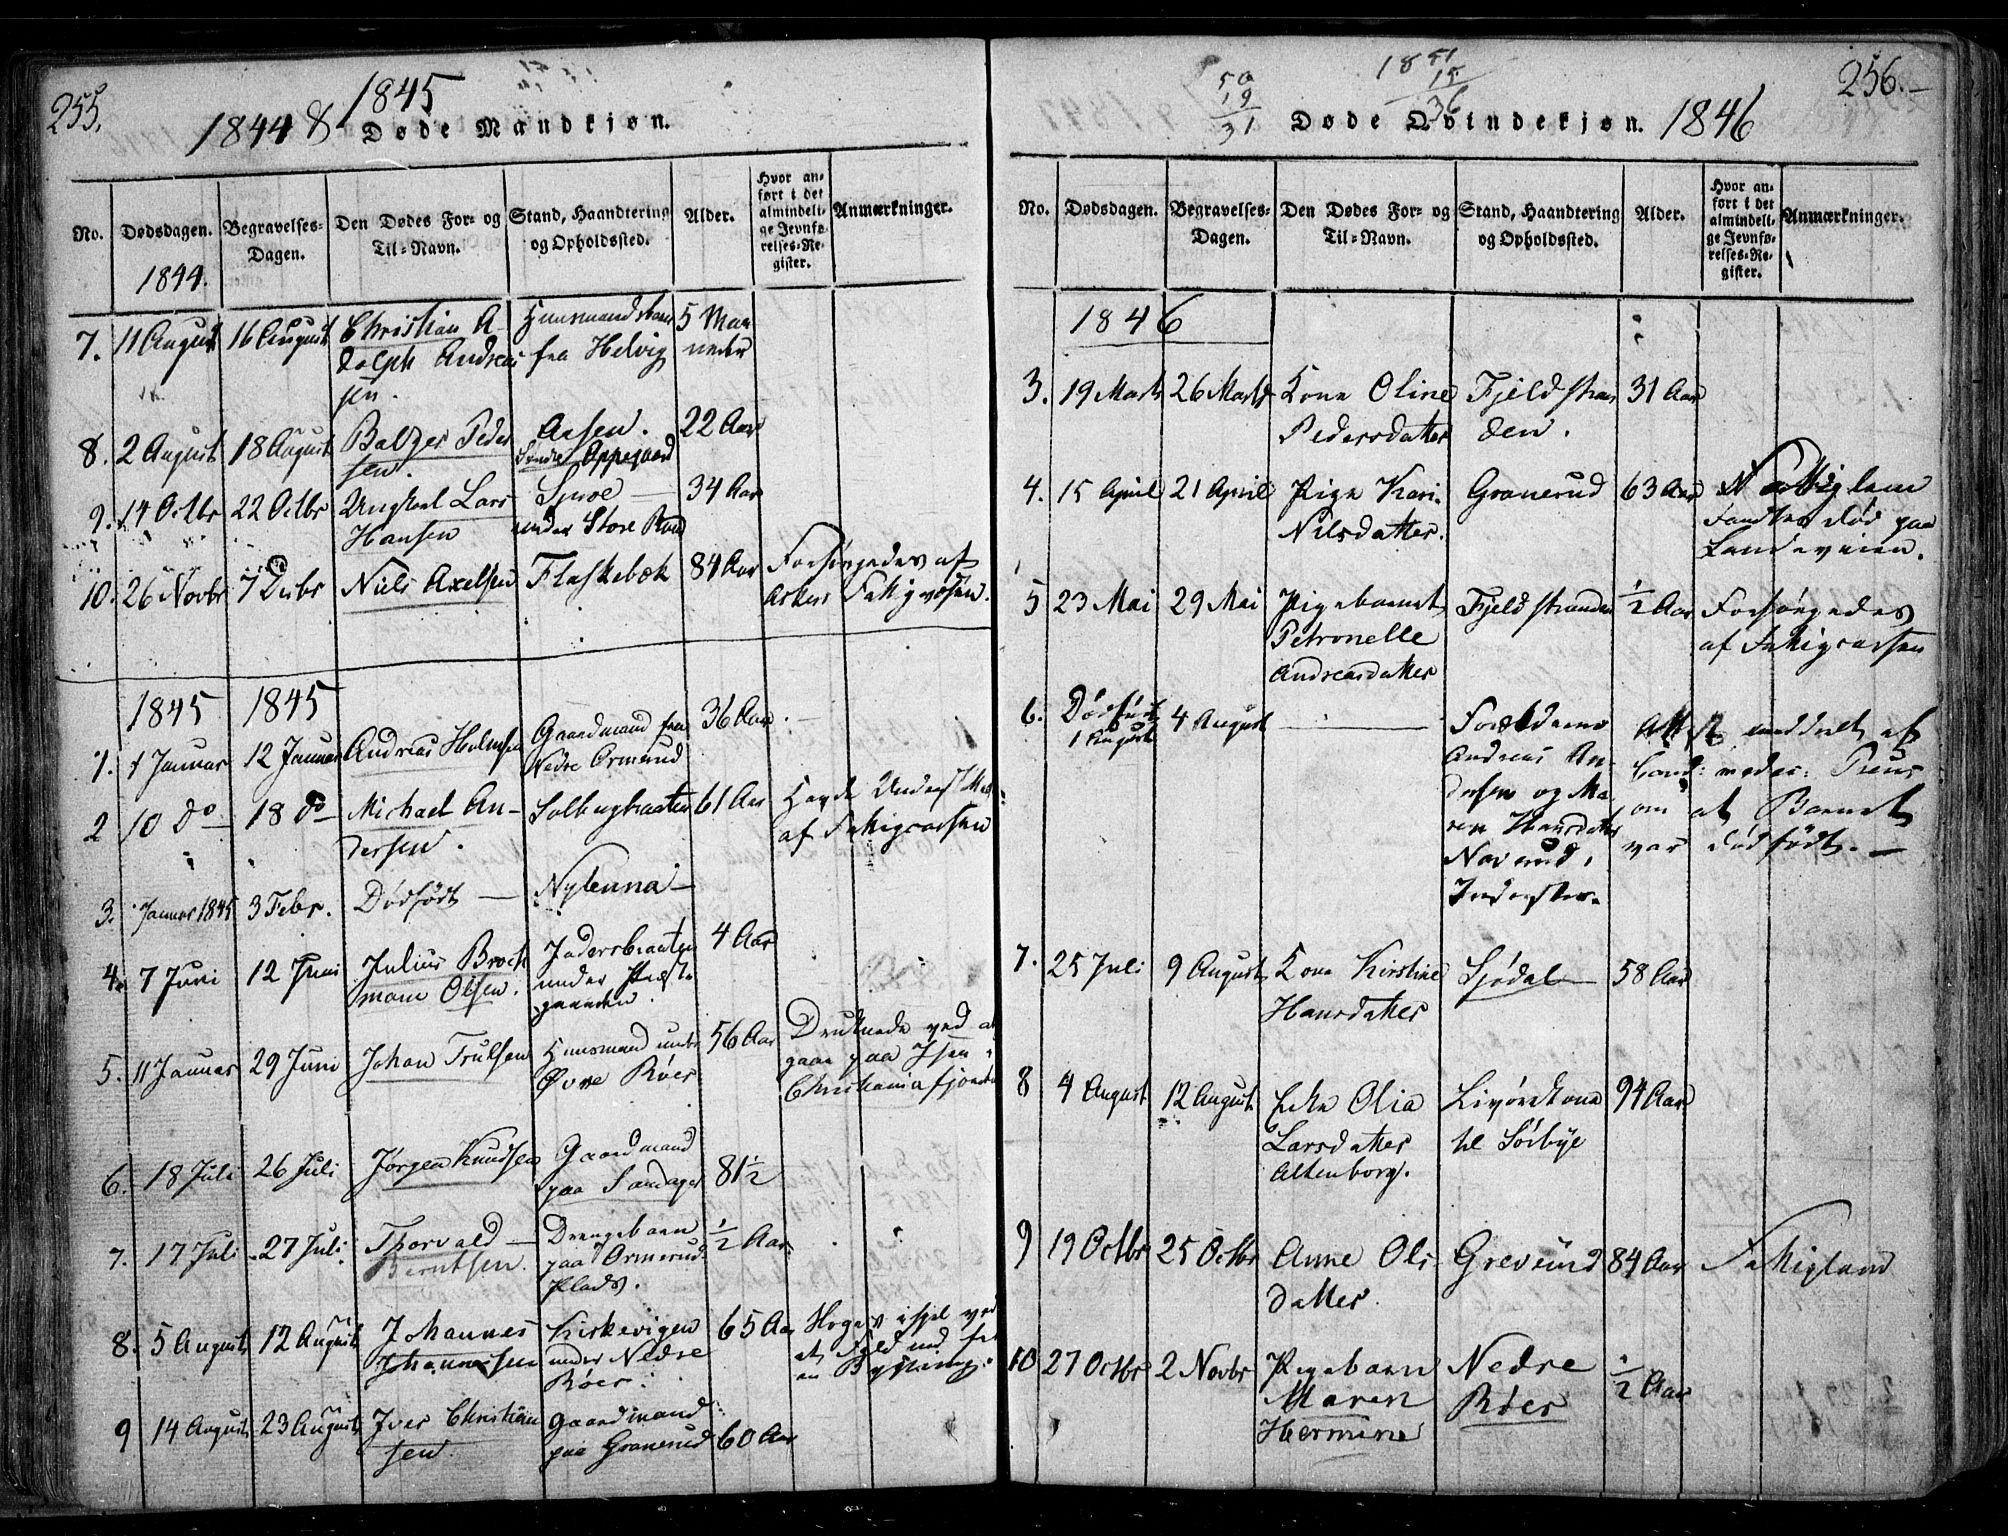 255.
1844 & 1845
Døde Mandkjøn.
No.
Dødsdagen.
Begravelses-
Dagen.
Den Dødes For- og
Til-Navn.
Stand, Haandtering
og Opholdssted.
Alder.
Hvor an-
ført i det
almindeli-
ge Jevnfø-
relses-Re-
gister.
Anmærkninger.
1844.
7. 11 August 16 August Christian A-
dolph Andrea
sen.
fra Helvig
5 Maa
neder
8. 2 August 18 August Balzer Peder
sen.
Aasen.
Søndre Oppegaard
22 Aar
9. 14 Octbr 22 Octbr Ungkarl Lars
Hansen
under Store
34 Aar
10. 26 Novbr 7 Decbr Niels Axelsen Flaskebek 84 Aar Forsørgedes af
Askers Fattigvæsen.
1845 1845
1. 1 Januar 12 Januar Andreas Holmsen
Gaardmand fra
Nedre Ormerud
36 Aar
2 10 do 18 do Michael An-
dersen.
Solbergbraaten 61 Aar
af Fattigcassen
3. Januar 1845 3 Febr. Dødfødt Nylenna
4. 7 Juni 12 Juni Julius Brock
mann Olsen.
under Præste
gaarden.
4 Aar
5. 11 Januar 29 Juni Johan Trulsen
Huusmand under
Øvre Røer
56 Aar
Druknede ved at
gaae paa Isen
Christianiafjorden
6. 18 Juli 26 Juli Jørgen Knudsen
Gaardmand
paa Sandager
81½
7. 17 Juli 27 Juli Thorvald
Berntsen.
Drengebarn
paa Ormerud
Plads.
½ Aar
8. 5 August 12 August Johannes
Johannessen
Kirkevigen
under Nedre
Røer.
65 Aar
9 14 August 23 August Iver Christian
sen.
Gaardmand
paa Granerud
60 Aar
50
19
31
1851
15
36
256.
Døde Qvindekjøn. 1846
No.
Dødsdagen.
Begravelses-
Dagen.
Den Dødes For- og
Til-Navn.
Stand, Haandtering
og Opholdssted.
Alder.
Hvor an-
ført i det
almindeli-
ge Jevnfø-
relses-Re-
gister.
Anmærkninger.
1846
3. 19 Marts 26 Marts Kone Oline
Pedersdatter
Fjeldstran
den.
31 Aar
4. 15 April 21 April Pige Kari
Nilsdatter.
Granerud 63 Aar
Fandtes død paa
Landeveien.
5 23 Mai 29 Mai Pigebarnet
Petronelle
Andreasdatter
Fjeldstranden ½ Aar Forsørgedes
af Fattigcassen
6. Dødfødt
1 August
4 August
Forældrene
Andreas An-
dersen og Ma
ren Hansdatter
Attest meddeelt af
om at Barnet
var dødfødt.
7. 25 Juli 9 August Kone Kirstine
Hansdatter
Sjødal 58 Aar
8 4 August 12 August Enke Olia
Larsdatter
Altenborg.
til Sørbye
94 Aar
9 19 Octbr 25 Octbr Anne Ols
datter.
Greverud 84 Aar Fattiglem
10 27 Octbr 2 Novbr Pigebarn
Maren
Hermine
Nedre
Røer
½ Aar